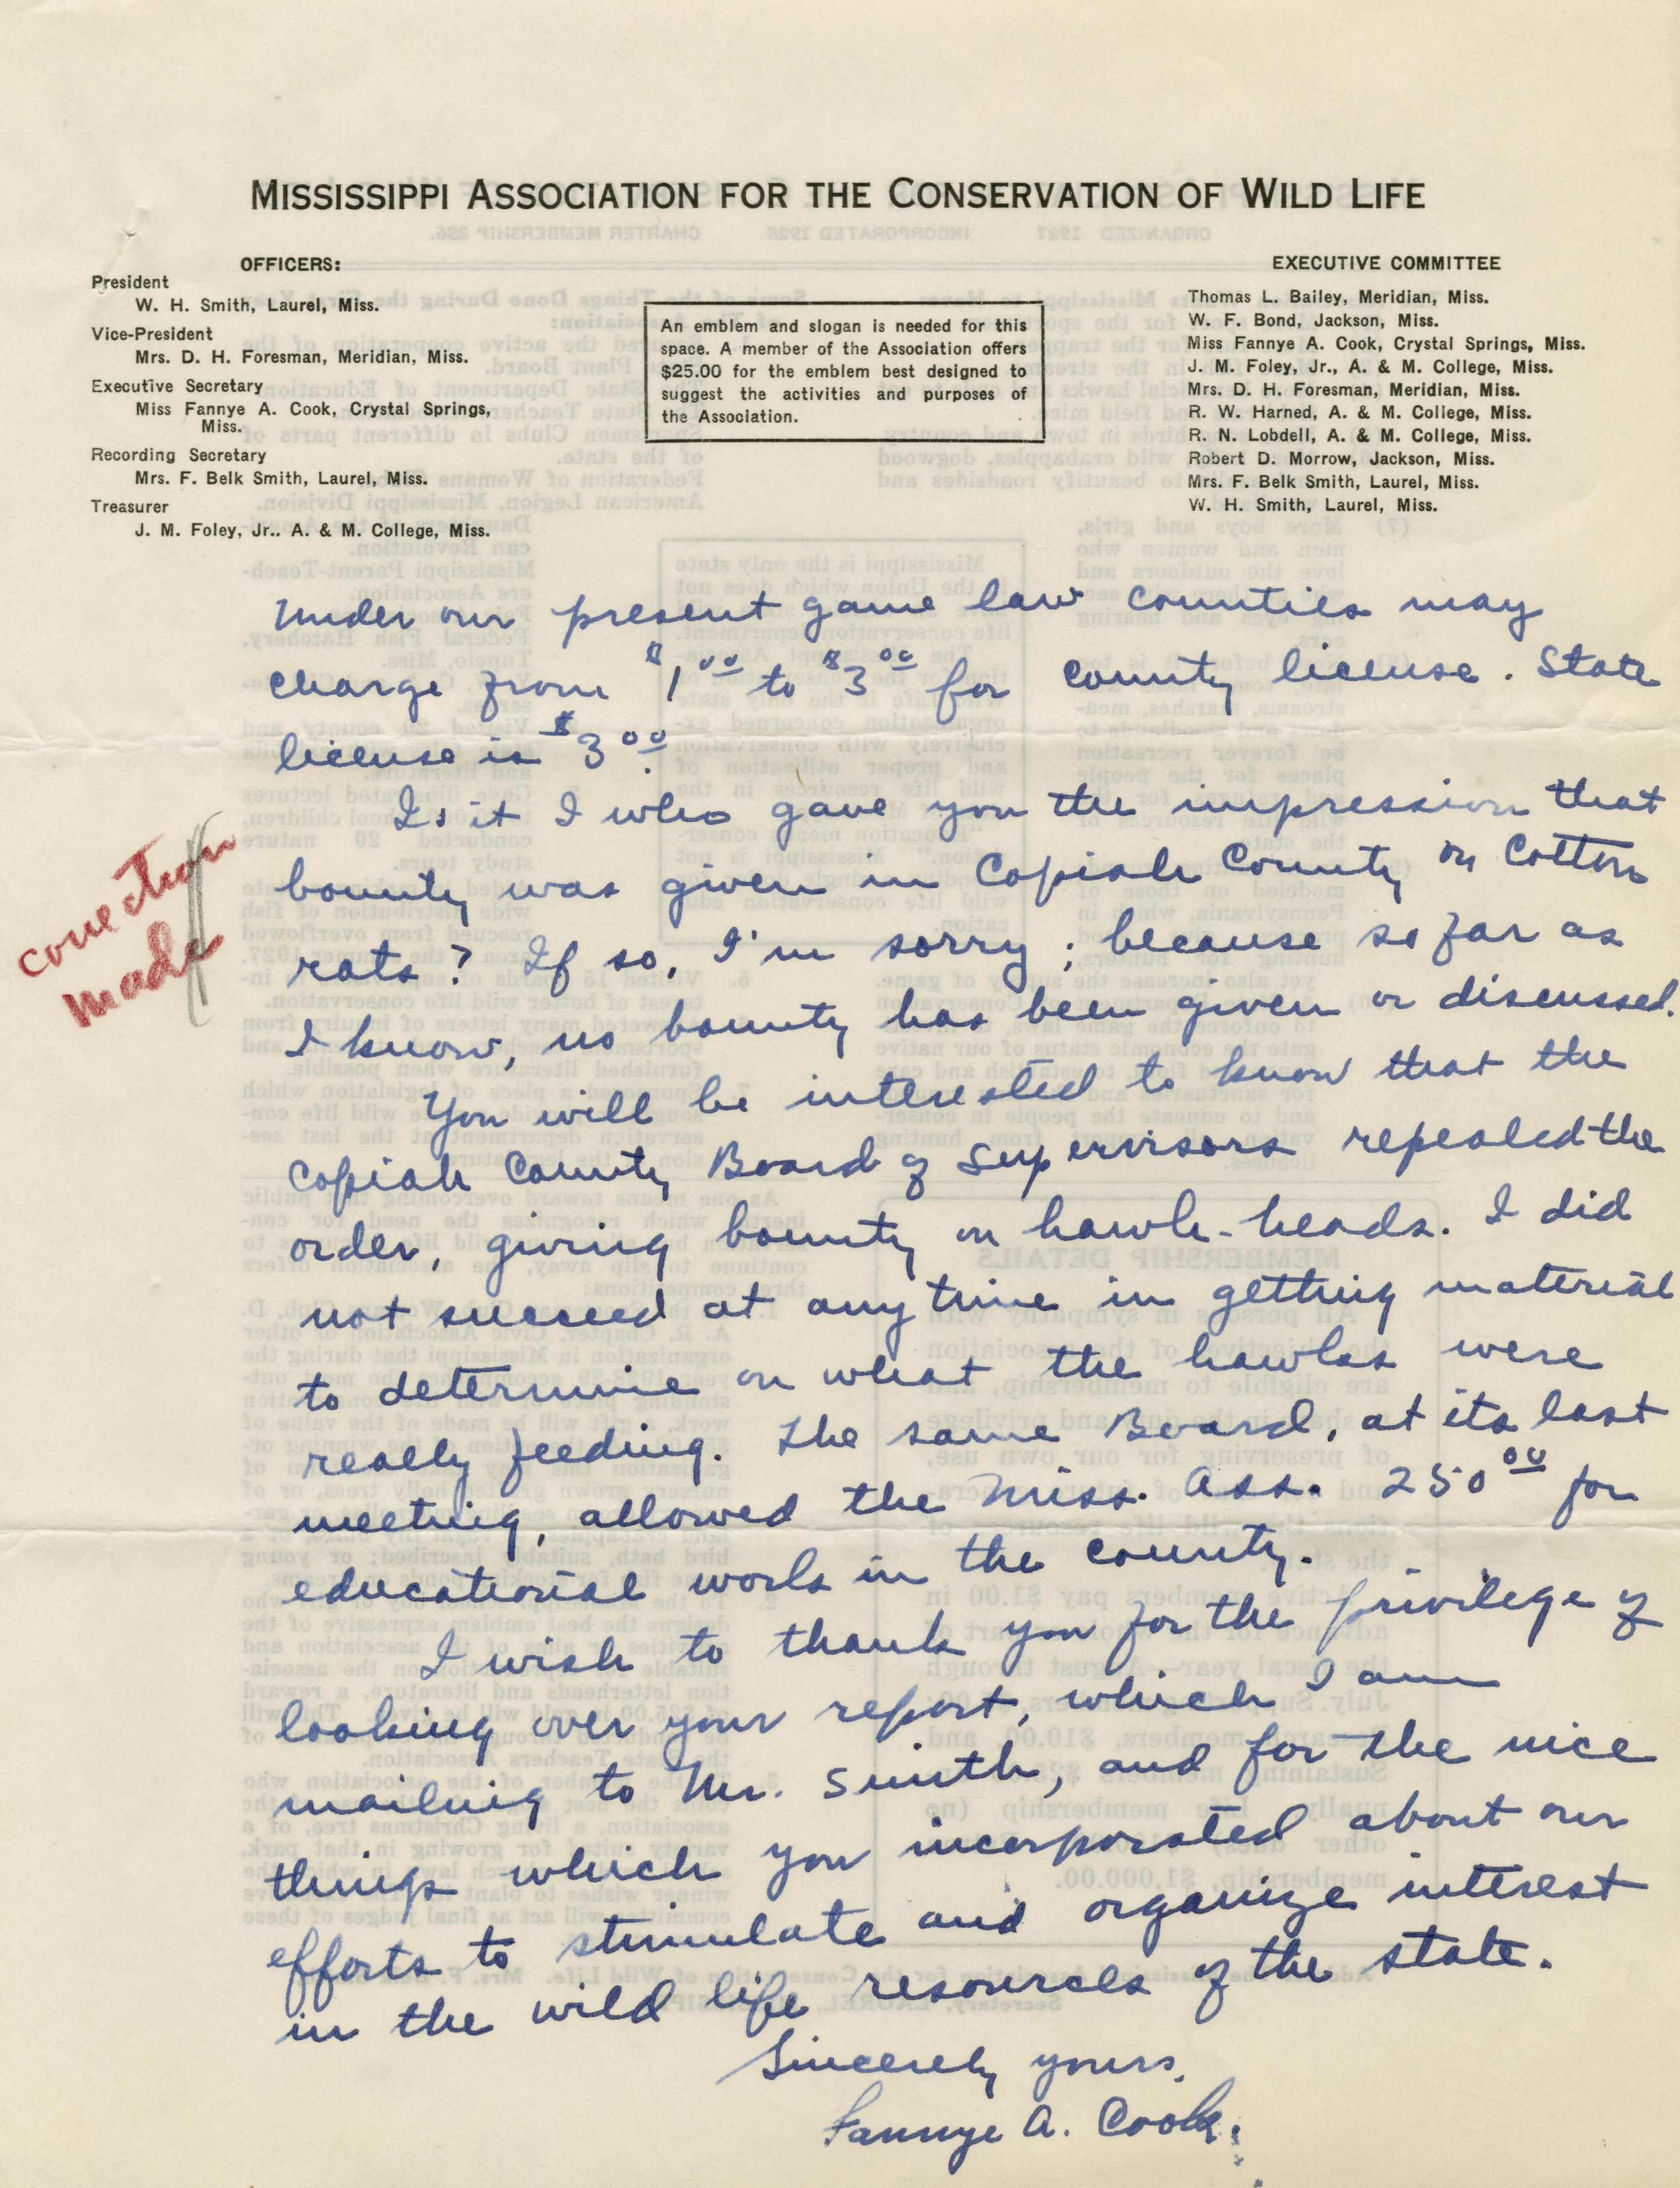 MISSISSIPPI ASSOCIATION FOR THE CONSERVATION OF WILD LIFE
OFFICERS:
President
W. H. Smith, Laurel, Miss.
Vice-President
Mrs. D. H. Foresman, Meridian, Miss.
Executive Secretary
Miss Fannye A. Cook, Crystal Springs,
Miss.
Recording Secretary
Mrs. F. Belk Smith, Laurel, Miss.
Treasurer
J. M. Foley, Jr.. A. & M. College, Miss.
An emblem and slogan is needed for this
space. A member of the Association offers
$25.00 for the emblem best designed to
suggest the activities and purposes of
the Association.
EXECUTIVE COMMITTEE
Thomas L. Bailey, Meridian, Miss.
W. F. Bond, Jackson, Miss.
Miss Fannye A. Cook, Crystal Springs, Miss.
J. M. Foley, Jr., A. & M. College, Miss.
Mrs. D. H. Foresman, Meridian, Miss.
R. W. Harned, A. & M. College, Miss.
R. N. Lobdell, A. & M. College, Miss.
Robert D. Morrow, Jackson, Miss.
Mrs. F. Belk Smith, Laurel, Miss.
W. H. Smith, Laurel, Miss.
Under our present game law counties may
charge from $1.00 to $3.00 for county license. State
license is $3.00.
Is it I who gave you the impression that
bounty was given in Copiah County on Cotton
rats? If so, I'm sorry; because so far as
I know, no bounty has been given or discussed.
correction
made
You will be interested to know that the
Copiah County Board of Supervisors repealed the
order, giving bounty on hawk-heads. I did
not succeed at any time in getting material
to determine on what the hawks were
really feeding. The same Board, at its last
meeting, allowed the Miss. Ass. 250.00 for
educational work in the county.
I wish to thank you for the privilege of
looking over your report, which I am
mailing to Mr. Smith, and for the nice
things which you incorporated about our
efforts to stimulate and organize interest
in the wild life resources of the state.
Sincerely yours,
Fannye A. Cook.